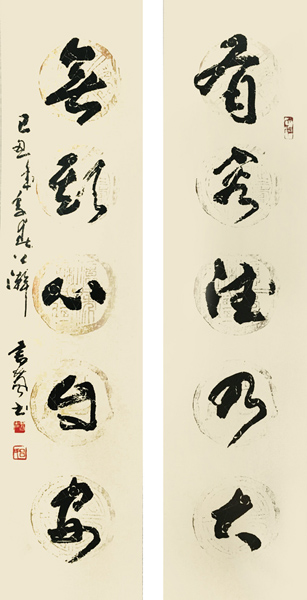 有容德乃大
無欺心自安
己丑年春
書